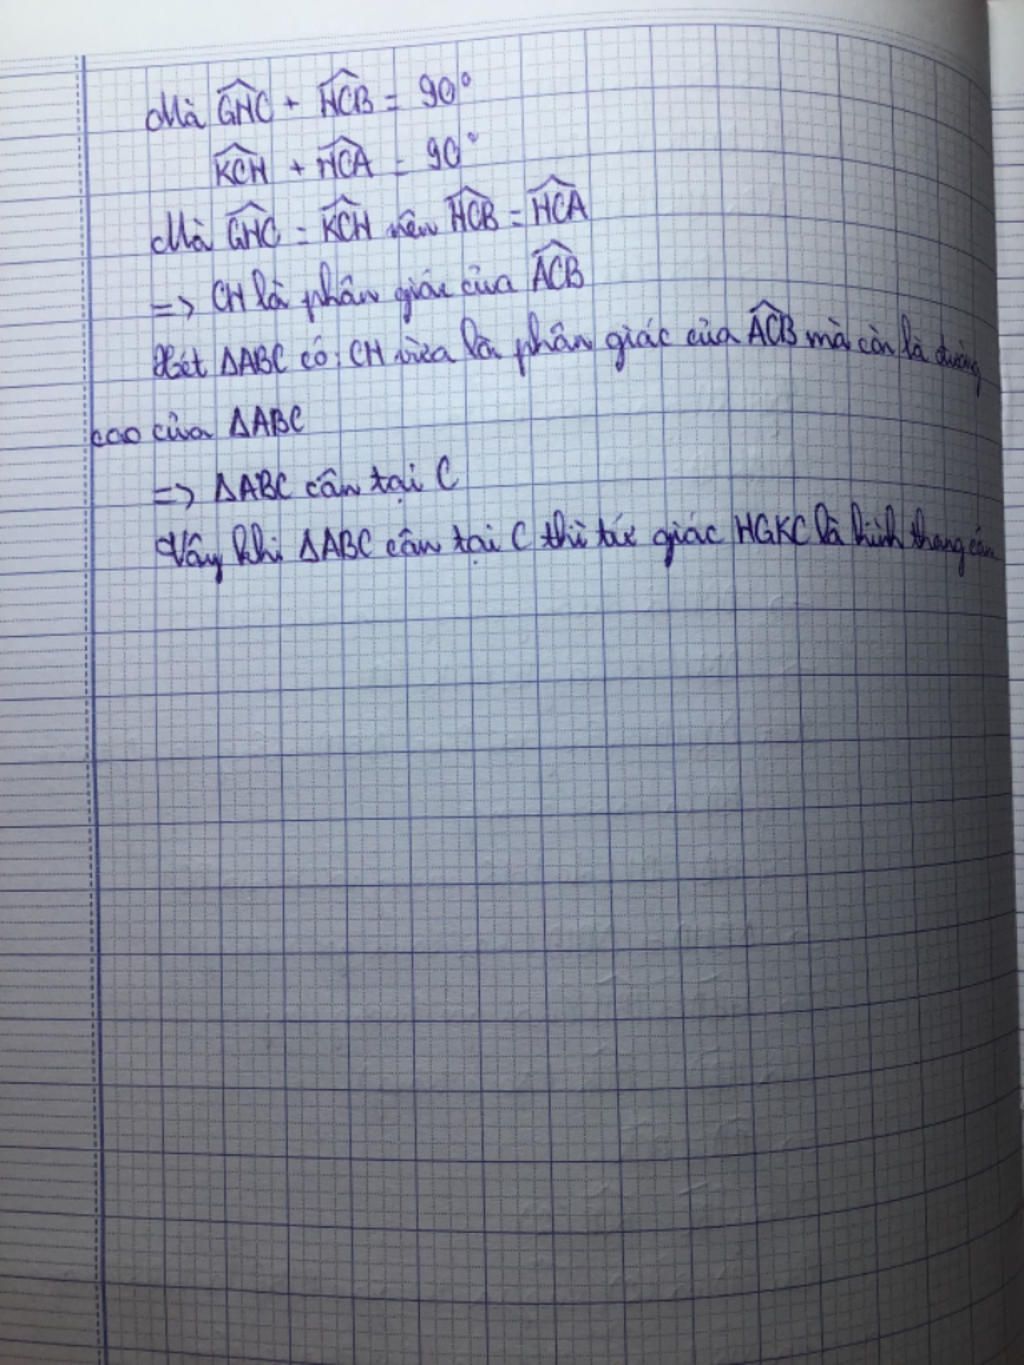 Mà GHC + HCB = 90°
KCH + HCA = 90°
Mà GHC = KCH nên HCB = HCA
=> CH là phân giác của ACB
Xét ΔABC có: CH vừa là phân giác của ACB mà còn là đường
cao của ΔABC
=> ΔABC cân tại C
Vậy khi ΔABC cân tại C thì tứ giác HGKC là hình thang cân